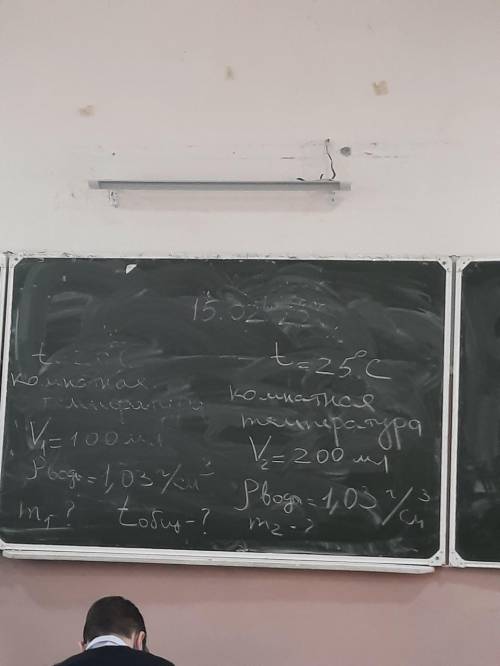 15.02.
t = °C
комнатная
температура
V₁ = 100 мл
ρводы = 1,03 г/см³
m₁ - ? tобщ - ?
t = 25°C
комнатная
температура
V₂ = 200 мл
ρводы = 1,03 г/см³
m₂ - ?